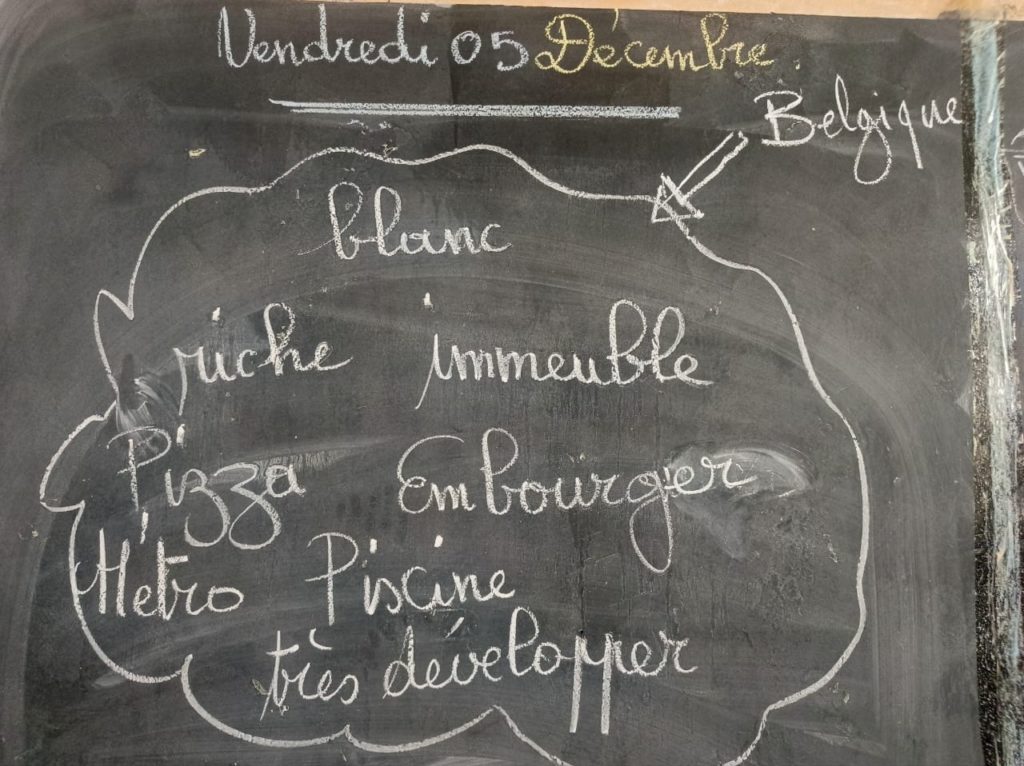 Vendredi 05 Décembre.
Belgique
blanc
riche immeuble
Pizza Embourger
Métro Piscine
très développer